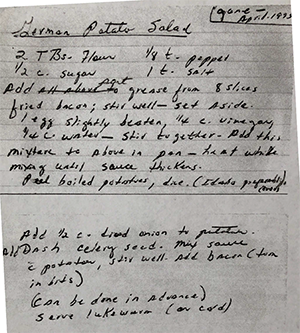 German Potato Salad
(gone - April. 1993
2 TBs. Flour 1/8 t. pepper
1/2 c. sugar 1 t. salt
Add all above to part grease from 8 slices
fried bacon; stir well - set aside.
1 egg slightly beaten, 1/4 c. vinegar,
1/4 c water - stir together. Add this
mixture to above in pan - heat while
mixing until sauce thickens.
Peel boiled potatoes, dice. (Idaho preferably)
Add 1/2 c. diced onion to potatoes.
Dash celery seed. mix sauce
c potatoes, stir well. Add bacon (torn
in bits)
(Can be done in advance)
Serve lukewarm (or cold)